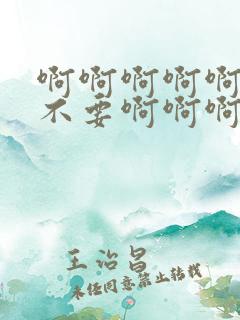 啊啊啊啊啊
不要啊啊啊
王治昌
未经同意禁止转载